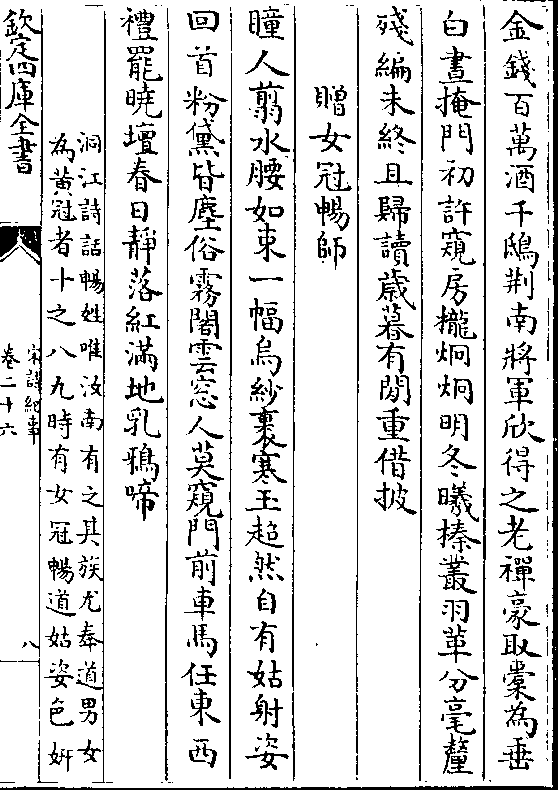 金錢百萬酒千鴟荆南將軍欣得之老禪豪取橐為垂
白晝掩門初許窺房櫳炯炯明冬曦榛叢羽革分毫釐
殘編未終且歸讀歲暮有閒重借披
贈女冠暢師
瞳人翦水腰如束一幅烏紗裹寒玉超然自有姑射姿
回首粉黛皆塵俗霧閣雲窓人莫窺門前車馬任東西
禮罷曉壇春日靜落紅滿地乳鴉啼
洞江詩話暢姓唯汝南有之其族尤奉道男女
為黃冠者十之八九時有女冠暢道姑姿色妍
欽定四庫全書
宋詩紀事
卷二十六
八